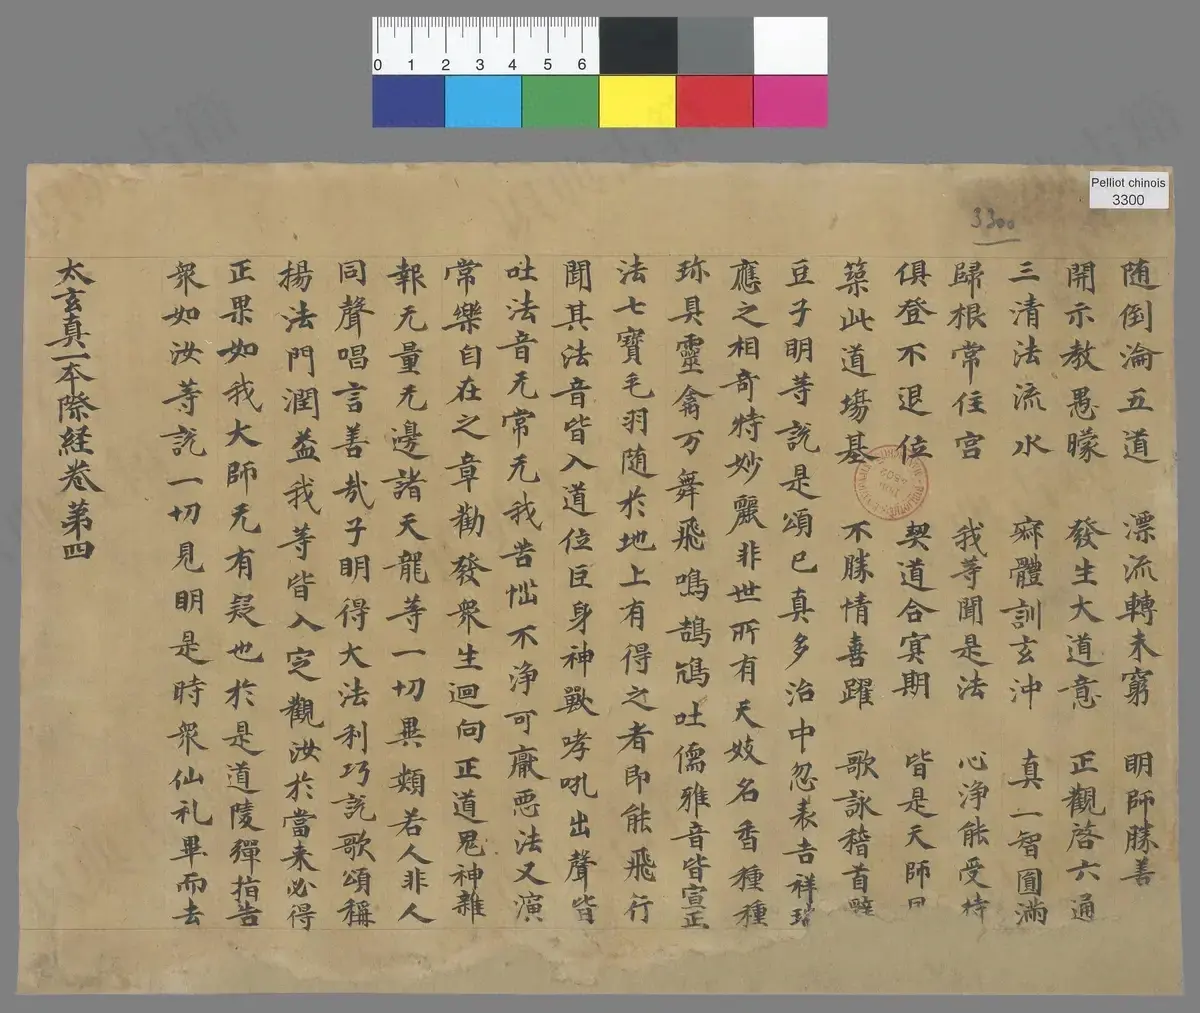 0 1 2 3 4 5 6
Pelliot chinois
3300
3300
随倒淪五道 漂流轉未窮 明師勝善
開示教愚矇 發生大道意 正觀啓六通
三清法流水 療體訓玄沖 真一智圓滿
歸根常住宮 我等聞是法 心淨能受持
俱登不退位 契道合冥期 皆是天師
築此道場基 不勝情喜躍 歌詠稽首
豆子明等說是頌已真多治中忽表吉祥瑞
應之相奇特妙麗非世所有天妓名香種種
珎具靈禽万舞飛鳴鵠鳩吐儒雅音皆宣正
法七寶毛羽随於地上有得之者即能飛行
聞其法音皆入道位巨身神獸哮吼出聲皆
吐法音无常无我苦惱不淨可厭惡法又演
常樂自在之章勸發衆生迴向正道鬼神雜
報无量无邊諸天龍等一切異類若人非人
同聲唱言善哉子明得大法利巧說歌頌稱
揚法門潤益我等皆入定觀汝於當来必得
正果如我大師无有疑也於是道陵彈指告
衆如汝等說一切見明是時衆仙礼畢而去
太玄真一本際経卷第四